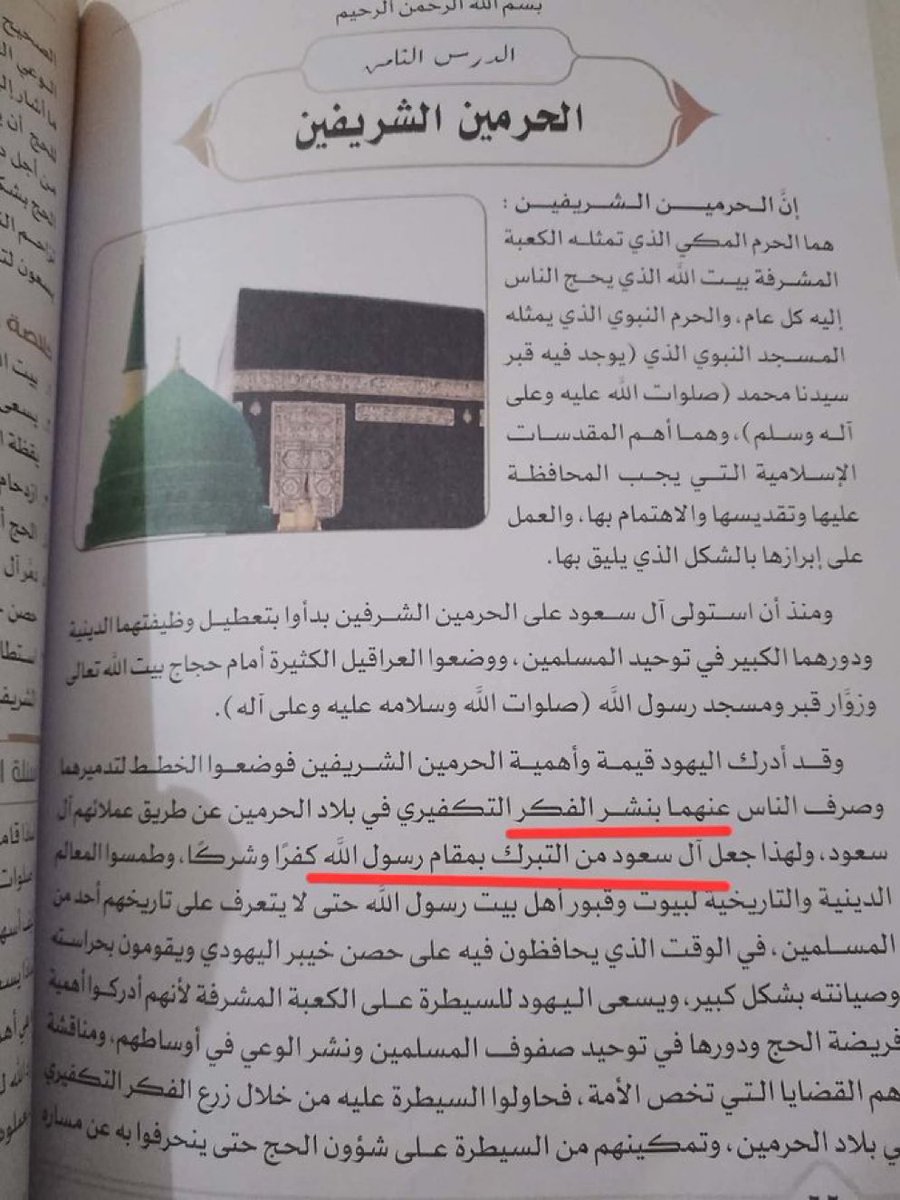 بسم الله الرحمن الرحيم
الدرس الثامن
الحرمين الشريفين
إنَّ الحرميـــن الـشـريفيـن :
هما الحرم المكي الذي تمثلـه الكعبة
المشرفة بيـت الله الذي يحج الناس
إليه كل عام، والحرم النبوي الذي يمثله
المسـجد النبوي الذي (يوجد فيه قبر
سيدنا محمد (صلوات الله عليه وعلى
آلـه وسـلم)، وهمـا أهـم المقدسـات
الإسلامية التـي يجـب المحافظـة
عليها وتقديسها والاهتمام بها، والعمل
على إبرازها بالشكل الذي يليق بها.
ومنذ أن استولى آل سعود على الحرمين الشرفين بدأوا بتعطيل وظيفتهما الدينية
ودورهما الكبير في توحيد المسلمين، ووضعوا العراقيل الكثيرة أمام حجاج بيت الله تعالى
وزوَّار قبر ومسجد رسول الله (صلوات الله وسلامه عليه وعلى آله).
وقـد أدرك اليهود قيمـة وأهمية الحرمين الشـريفين فوضعـوا الخطـط لتدميرهما
وصرف الناس عنهما بنشر الفكر التكفيري في بلاد الحرمين عن طريق عملائهم آل
سعود، ولهذا جعل آل سعود من التبرك بمقام رسول الله كفرًا وشركًا، وطمسوا المعالم
الدينية والتاريخية لبيوت وقبور أهل بيت رسول الله حتى لا يتعرف على تاريخهم أحد من
المسـلمين، في الوقت الذي يحافظون فيه على حصن خيبر اليهودي ويقومون بحراسته
وصيانته بشكل كبير، ويسعى اليهود للسيطرة على الكعبة المشرفة لأنهم أدركوا أهمية
فريضة الحج ودورها في توحيد صفوف المسلمين ونشر الوعي في أوساطهم، ومناقشة
هم القضايا التـي تخص الأمة، فحاولوا السيطرة عليه من خلال زرع الفكر التكفيري
ي بلاد الحرمين، وتمكينهم من السيطرة على شؤون الحج حتى ينحرفوا به عن مساره